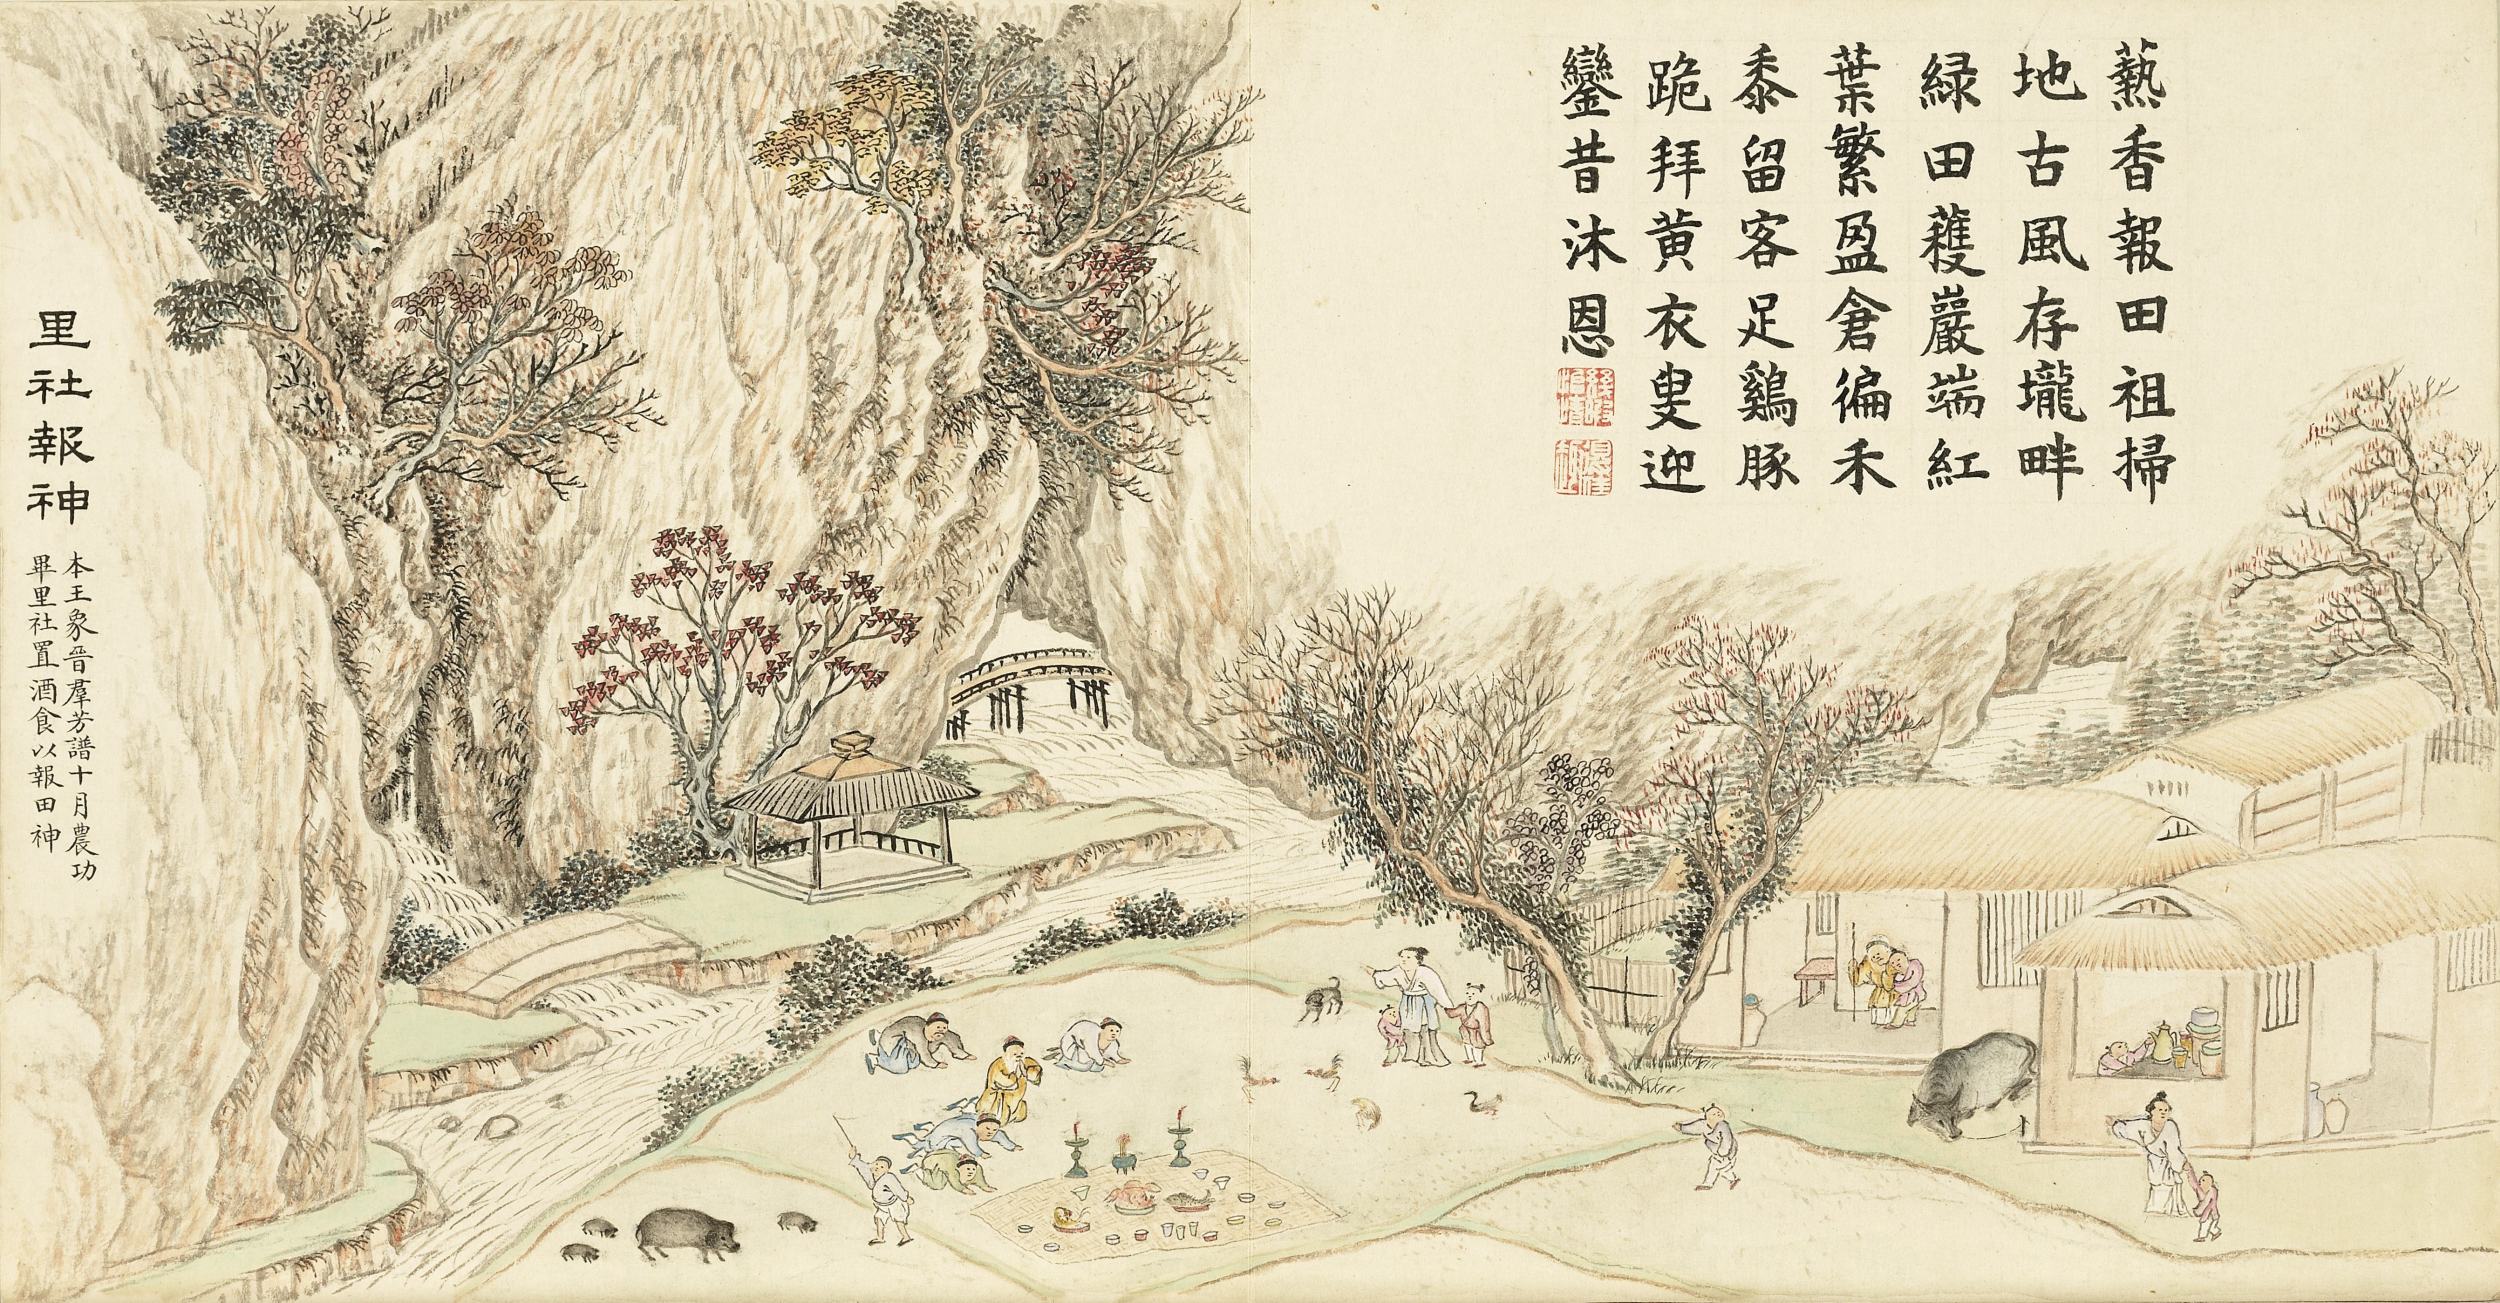 爇香報田祖掃
地古風存壠畔
緑田穫巖端紅
葉繁盈倉徧禾
黍留客足鷄豚
跪拜黄衣叟迎
鑾昔沐恩
里社報神
本王象晉羣芳譜十月農功
畢里社置酒食以報田神